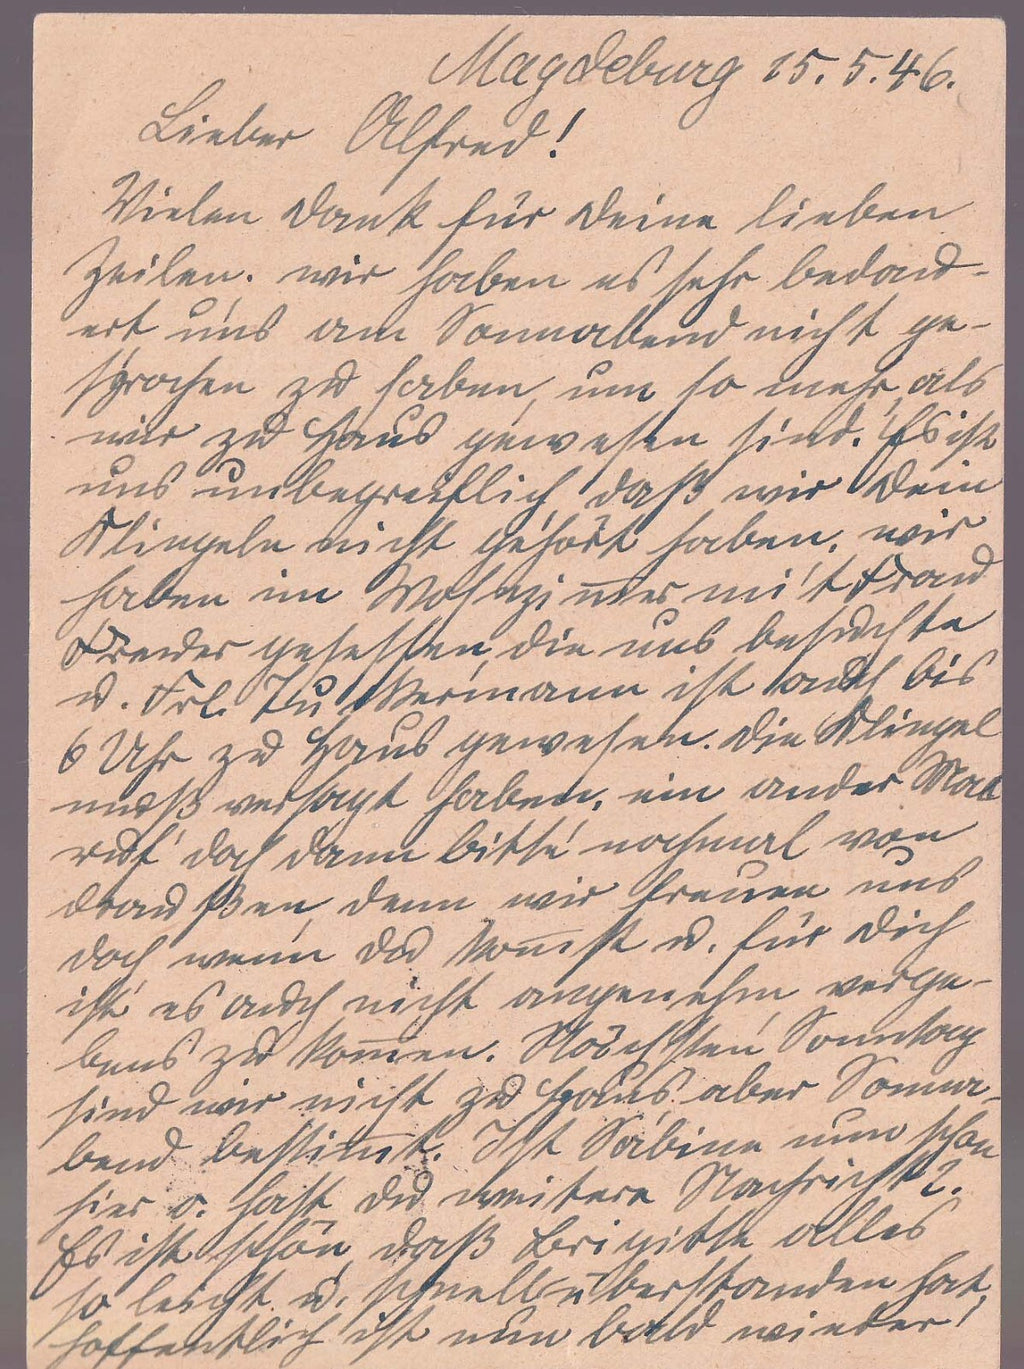 Magdeburg 15.5.46.
Lieber Alfred!
Vielen Dank für Deine lieben
Zeilen. Wir haben es sehr bedau-
ert uns am Sonnabend nicht ge-
sprochen zu haben, um so mehr, als
wir zu Haus gewesen sind. Es ist
uns unbegreiflich, daß wir Dein
Klingeln nicht gehört haben. Wir
haben im Wohnzim̅er mit Frau
gesessen, die uns besuchte
u. Frl. ist auch bis
6 Uhr zu Haus gewesen. Die Klingel
muß versagt haben. Ein ander Mal
ruf doch dann bitte nochmal von
draußen, denn wir freuen uns
doch wenn Du kom̅st u. für Dich
ist es auch nicht angenehm, verge-
bens zu kom̅en. Nächsten Sonntag
sind wir nicht zu Haus aber Sonna-
bend bestim̅t. Ist Sabine nun schon
hier o. hast Du weitere Nachricht?.
Es ist schön, daß Brigitte alles
so leicht u. schnell überstanden hat,
hoffentlich ist nun bald wieder